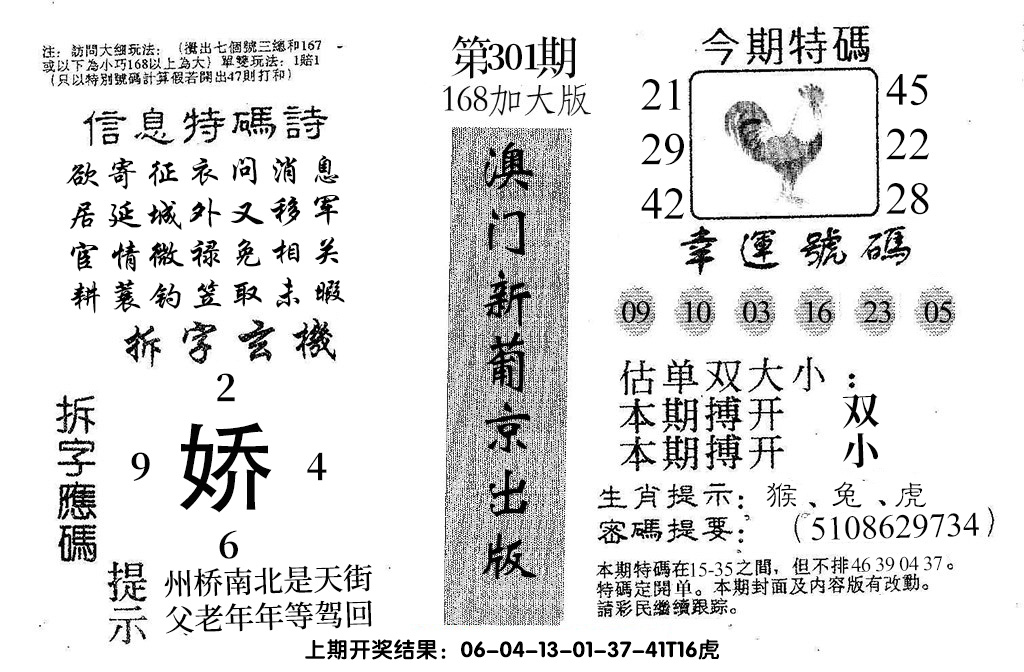 注：訪問大细玩法：（攪出七個號三總和167
或以下為小巧168以上為大）單雙玩法：1賠1
（只以特別號碼計算假若開出47則打和）
信息特碼詩
欲寄征衣问消息
居延城外又移军
官情微禄免相关
耕蓑钓笠取未暇
拆字玄機
拆字應碼
2
9 娇 4
6
提示
州桥南北是天街
父老年年等驾回
第301期
168加大版
澳门新葡京出版
今期特碼
21 45
29 22
42 28
幸運號碼
09 10 03 16 23 05
估单双大小：
本期搏开 双
本期搏开 小
生肖提示：猴、兔、虎
密碼提要：（5108629734）
本期特碼在15-35之間，但不排46 39 04 37。
特碼定開单。本期封面及内容版有改動。
請彩民繼續跟踪。
上期开奖结果：06-04-13-01-37-41T16虎